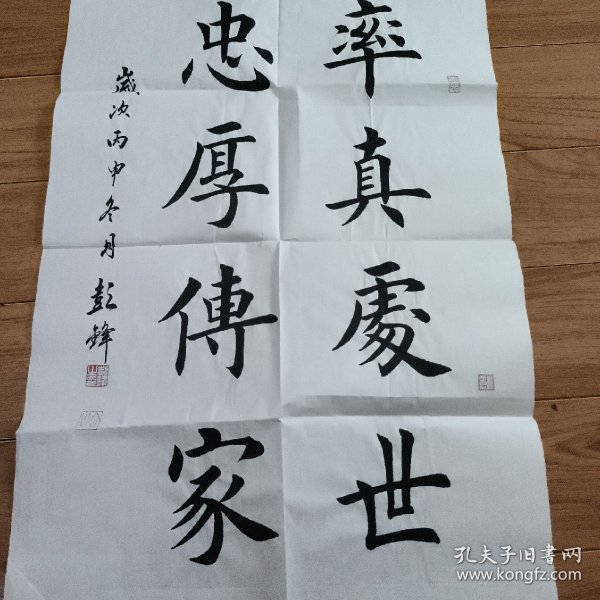 率真處世
忠厚傳家
歲次丙申冬月
彭鋒
孔夫子旧书网
www.kongfz.com